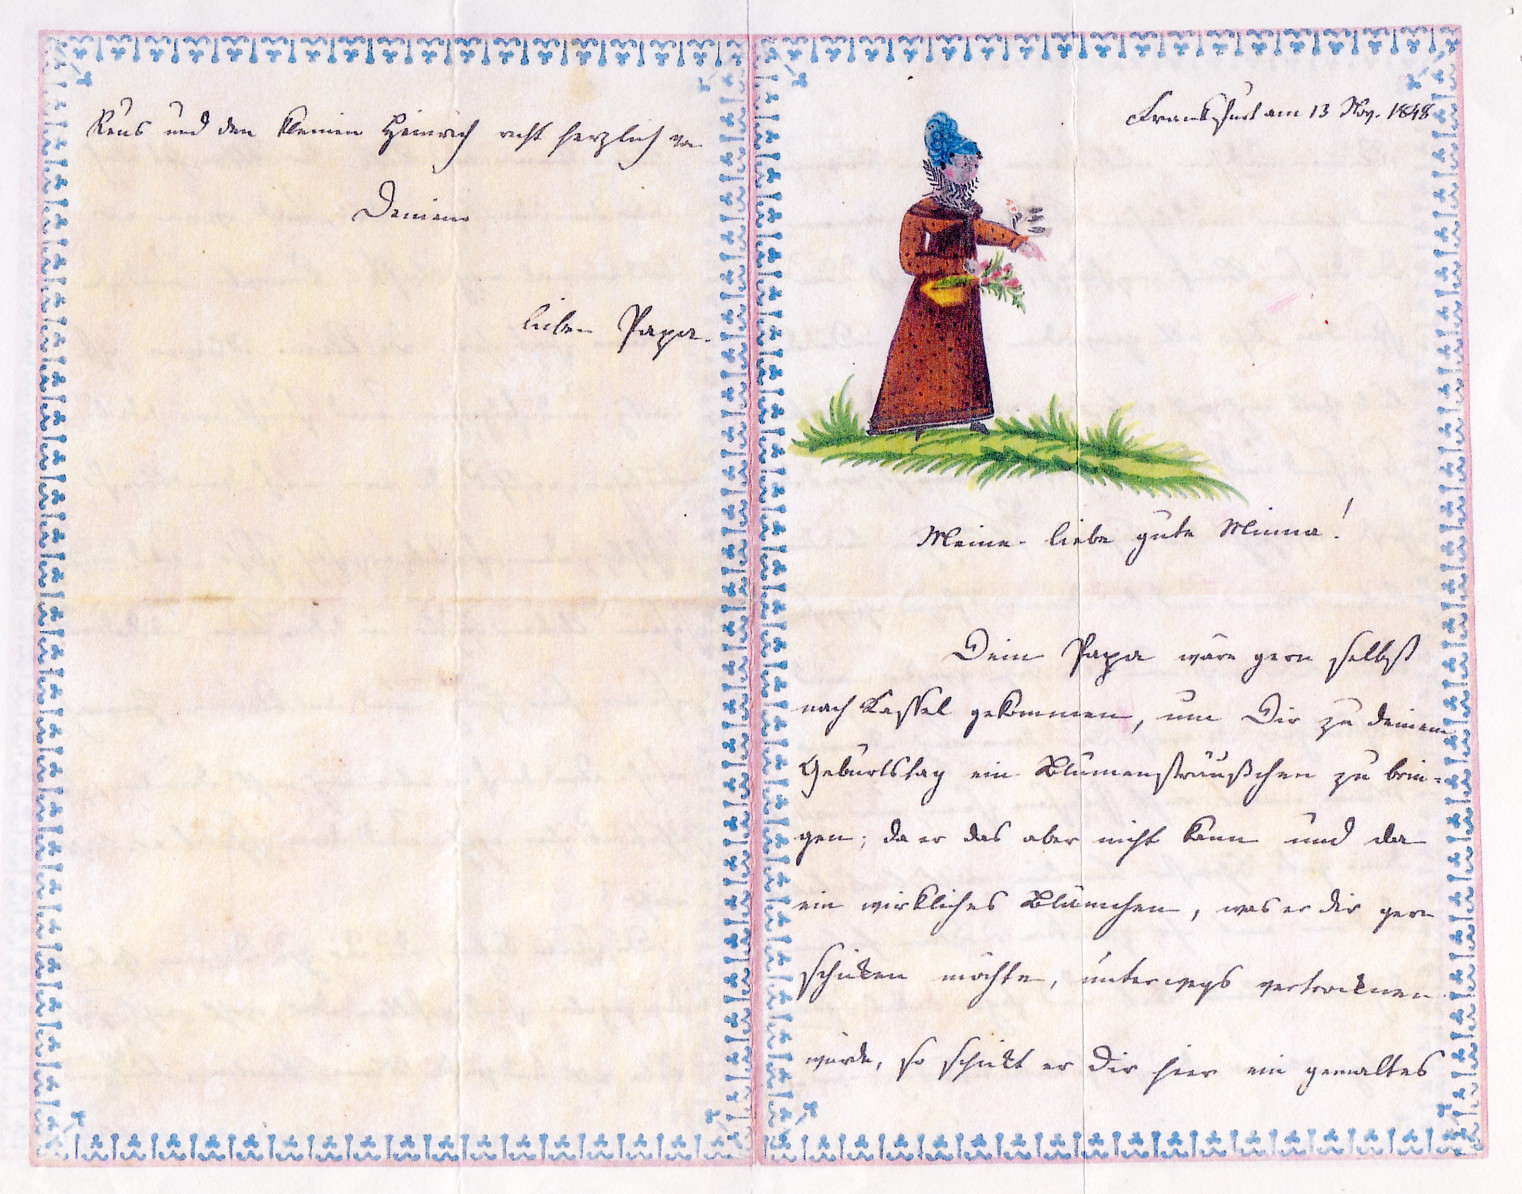 und den kleinen Heinrich recht herzlich von
Deinem
lieben Papa.
Frankfurt am 13 Nov. 1848
Meine liebe gute Minna!
Dein Papa wäre gern selbst
nach Kassel gekommen, um Dir zu deinem
Geburtstag ein Blumensträußchen zu brin-
gen; da er das aber nicht kann und da
ein wirkliches Blümchen, was er dir gern
schicken möchte, unterwegs vertrocknen
würde, so schickt er Dir hier ein gemaltes